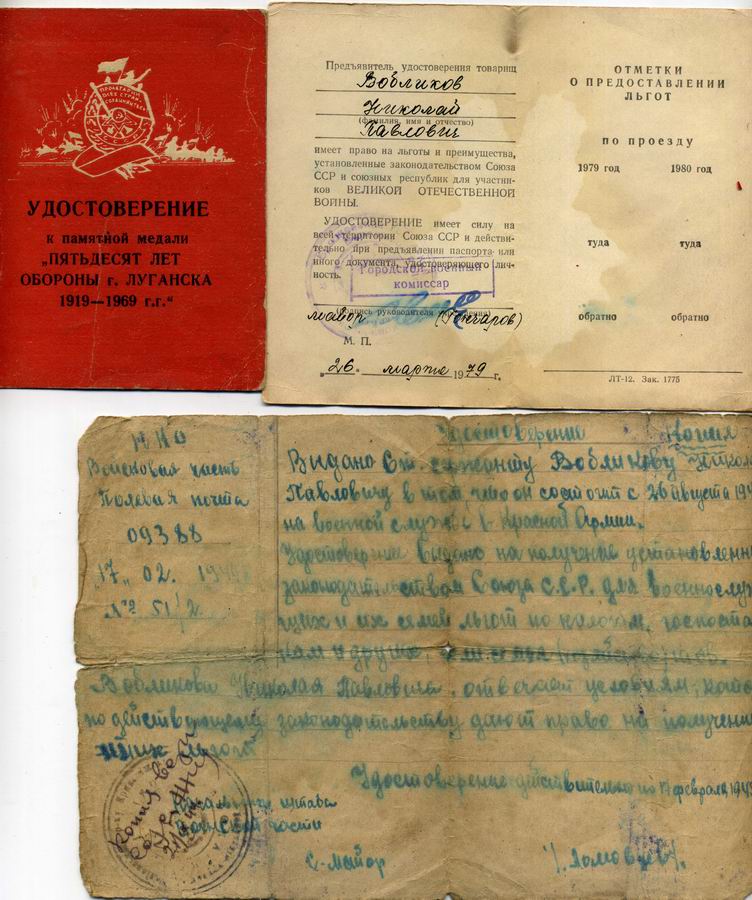 ПРОЛЕТАРИИ
ВСЕХ СТРАН
СОЕДИНЯЙТЕСЬ
УДОСТОВЕРЕНИЕ
к памятной медали
„ПЯТЬДЕСЯТ ЛЕТ
ОБОРОНЫ г. ЛУГАНСКА
1919—1969 г.г.“
Предъявитель удостоверения товарищ
Вобликов
Николай
(фамилия, имя и отчество)
Павлович
имеет право на льготы и преимущества,
установленные законодательством Союза
ССР и союзных республик для участни-
ков ВЕЛИКОЙ ОТЕЧЕСТВЕННОЙ
ВОЙНЫ.
УДОСТОВЕРЕНИЕ имеет силу на
всей территории Союза ССР и действи-
тельно при предъявлении паспорта или
иного документа, удостоверяющего лич-
ность.
Городской военный
комиссар
майор (Гончаров)
(подпись руководителя
М. П.
„26“ марта 1979 г.
ОТМЕТКИ
О ПРЕДОСТАВЛЕНИИ
ЛЬГОТ
по проезду
1979 год 1980 год
туда туда
обратно обратно
ЛТ-12. Зак. 1775
НКО
Войсковая часть
Полевая почта
09388
„17„ 02. 194
№ 51/2
Удостоверение Копия
Выдано Ст. сержанту Вобликову Никол
Павловичу в том, что он состоит с 26 августа 194
на военной службе в Красной Армии.
Удостоверение выдано на получение установленн
законодательством Союза С.С.Р. для военнослу
щих и их семей льгот по налогам, госпоста
кам и других,
Вобликова Николая Павловича, отвечает условиям, кото
по действующему законодательству дают право на получени
этих льгот.
Удостоверение действительно по 17 февраля 194
Начальник штаба
Воинской части
г-майор
Копия верна